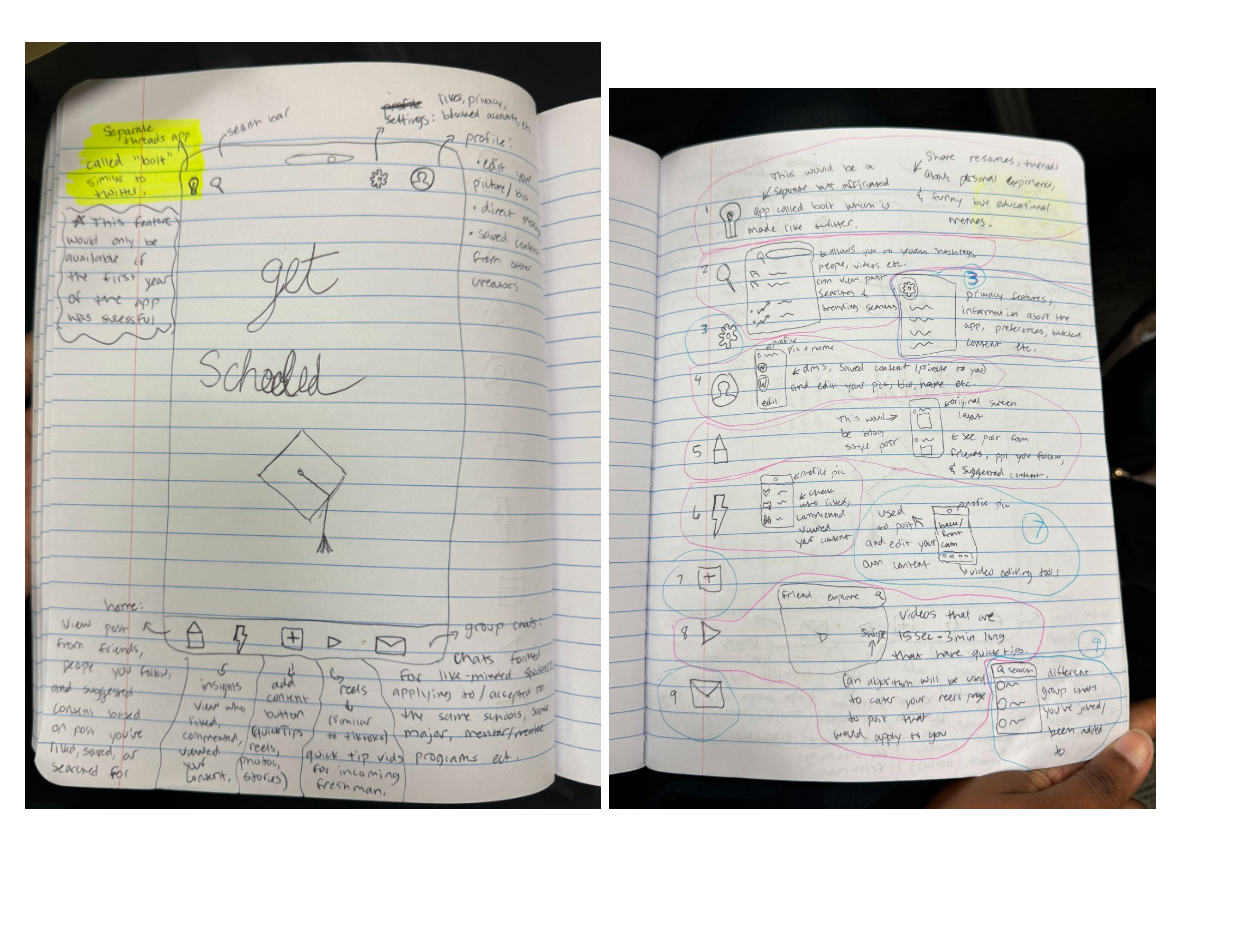 Separate
threads app
called "bolt"
similar to
twitter.
search bar
profile likes, privacy,
settings: blocked accounts, etc
profile:
• edit your
picture/bio
• direct message
• saved content
from other
creators
☆ This feature
would only be
available if
the first year
of the app
was sucessful
get
Schooled
home:
view post
from friends,
people you follow,
and suggested
content based
on post you're
liked, saved, or
searched for
insights
view who
liked,
commented,
viewed
your
content,
add
content
button
(quicktips
reels,
photos,
stories)
reels
(similar
to tiktoks)
quick tip vids
for incoming
freshman.
group chats:
chats formed
for like-minded
applying to/accepted to
the same schools, same
major, mentor/mentee
programs ect.
1
This would be a
separate but affiliated
app called bolt which is
made like twitter.
Share resumes, threads
about personal experience,
& funny but educational
memes.
2
allows you to search hashtags,
people, videos etc.
can view past
searches &
trending searches
3
3
privacy features,
information about the
app, preferences, blocked
content etc.
4
profile
pic + name
edit
dm's, saved content (private to you)
and edit your pic, bio, name etc.
5
This would
be blog
style post
original screen
layout
to see post from
friends, ppl you follow,
& suggested content.
6
profile pic
check
who liked,
commented
viewed
your content
7
used
to post
and edit your
own content
profile pic
back/
front
cam
video editing tools
7
8
friend explore
swipe
videos that are
15sec - 3min long
that have quick tips.
(an algorithm will be used
to cater your reels page
to post that
would apply to you
9
9
search
different
group chats
you've joined/
been added
to